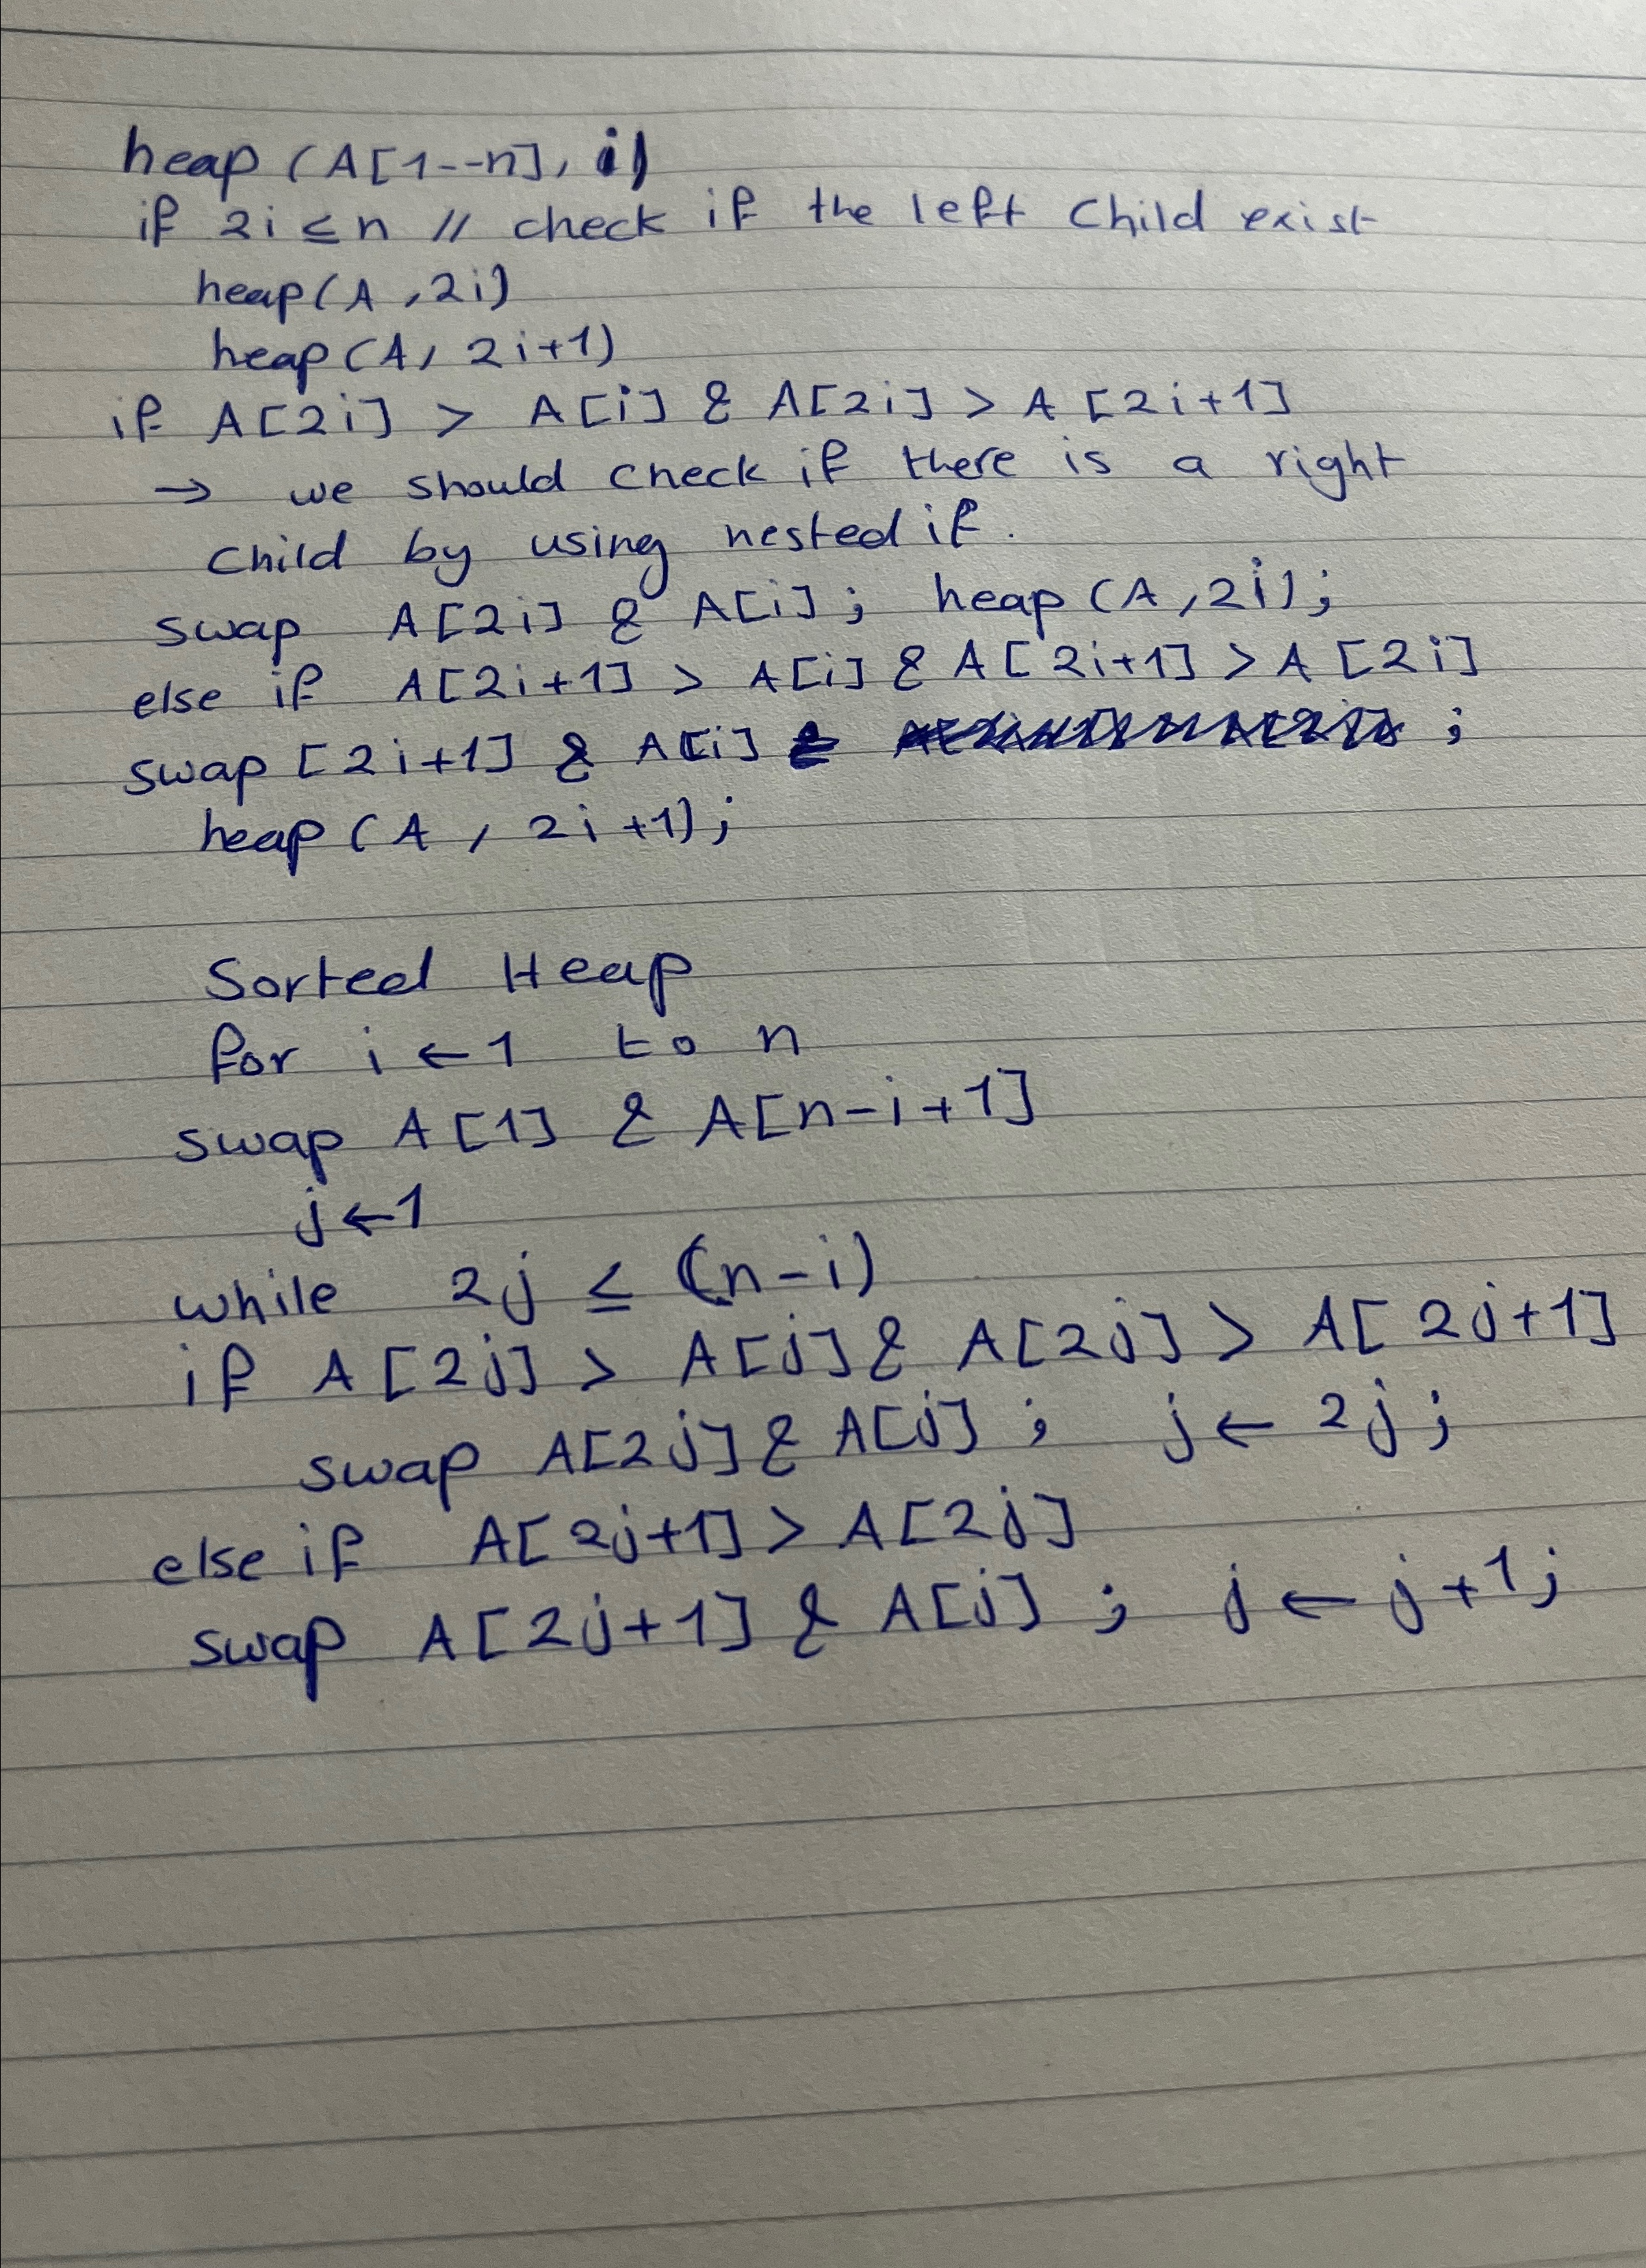 heap (A[1--n], i)
if 2i ≤ n // check if the left child exist
heap(A ,2i)
heap(A, 2i+1)
if A[2i] > A[i] & A[2i] > A [2i+1]
→ we should check if there is a right
child by using nested if.
swap A[2i] & A[i]; heap (A ,2i);
else if A[2i+1] > A[i] & A[2i+1] > A [2i]
swap [2i+1] & A[i] ;
heap (A , 2i+1);
Sorted Heap
for i ← 1 to n
swap A[1] & A[n-i+1]
j ← 1
while 2j ≤ (n-i)
if A[2j] > A[j] & A[2j] > A[2j+1]
swap A[2j] & A[j] ; j ← 2j ;
else if A[2j+1] > A[2j]
swap A[2j+1] & A[j] ; j ← j+1;